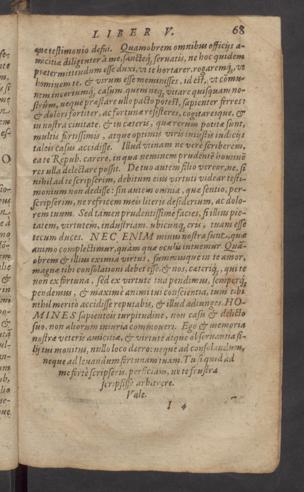 LIBER V. 68
que testimonio defui. Quamobrem omnibus officiis a-
micitiæ diligenter à me, sanctéq; servatis, ne hoc quidem
prætermittendum esse duxi, vt te hortarer, rogaremq;, vt
hominem te, & virum esse meminisses, id est, vt commu-
nem incertumq; casum, quem neq; vitare quisquam no-
strûm, neque præstare ullo pacto potest, sapienter ferres:
& dolori fortiter, ac fortunæ resisteres, cogitaresque, &
in nostra civitate, & in cæteris, quæ rerum potitæ sunt,
multis fortissimis, atque optimis viris iniustis iudiciis
taleis casus accidisse. Illud vtinam ne verè scriberem,
ea te Repub. carere, in qua neminem prudentē hominē
res ulla delectare possit. De tuo autem filio vereor, ne, si
nihil ad te scripserim, debitum eius virtuti videar testi-
monium non dedisse: sin autem omnia, quæ sentio, per-
scripserim, ne refricem meis literis desiderium, ac dolo-
rem tuum. Sed tamen prudentissimè facies, si illius pie-
tatem, virtutem, industriam, ubicunq; eris, tuam esse
tecum duces. NEC ENIM minus nostra sunt, quæ
animo complectimur, quàm quæ oculis intuemur. Quā-
obrem & illius eximia virtus, summusque in te amor,
magnæ tibi consolationi debet esse: & nos, cæteriq;, qui te
non ex fortuna, sed ex virtute tua pendimus, semperq;
pendemus, & maximè animi tui conscientia, cum tibi
nihil merito accidisse reputabis, & illud adiunges, HO-
MINES sapienteis turpitudine, non casu, & delicto
suo, non aliorum iniuria commoveri. Ego & memoria
nostræ veteris amicitiæ, & virtute atque observantia fi-
lij tui monitus, nullo loco deero: neque ad consolandum,
neque ad levandum fortunam tuam. Tu si quid ad
me fortè scripseris, perficiam, ne te frustra
scripsisse arbitrere.
Vale.
I 4